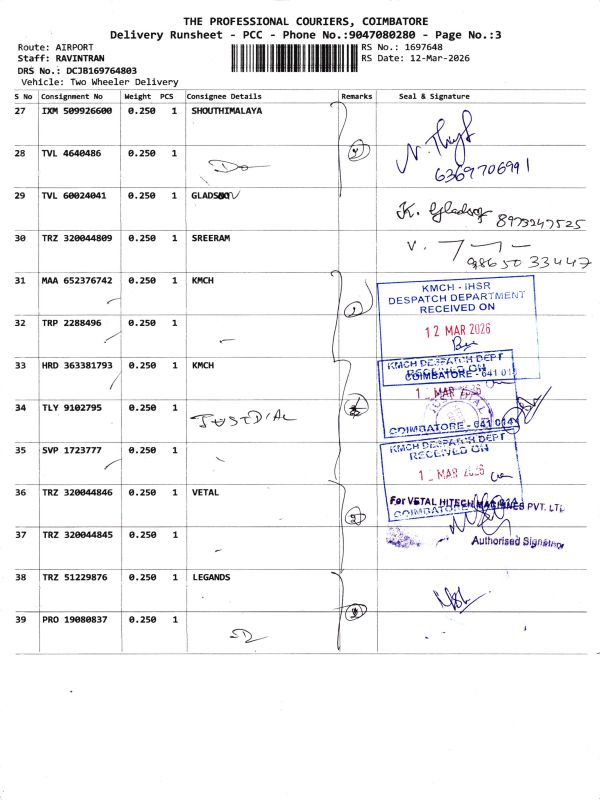 THE PROFESSIONAL COURIERS, COIMBATORE
Delivery Runsheet - PCC - Phone No.:9047080280 - Page No.:3
Route: AIRPORT
RS No.: 1697648
Staff: RAVINTRAN
RS Date: 12-Mar-2026
DRS No.: DCJB169764803
Vehicle: Two Wheeler Delivery
S No Consignment No Weight PCS Consignee Details Remarks Seal & Signature
27 IXM 509926600 0.250 1 SHOUTHIMALAYA
28 TVL 4640486 0.250 1
Do
6369706991
29 TVL 60024041 0.250 1 GLADSON
K. Gladson 8973247525
30 TRZ 320044809 0.250 1 SREERAM
9865033447
31 MAA 652376742 0.250 1 KMCH
KMCH - IHSR
DESPATCH DEPARTMENT
RECEIVED ON
12 MAR 2026
32 TRP 2288496 0.250 1
33 HRD 363381793 0.250 1 KMCH
KMCH DESPATCH DEPT
RECEIVED ON
COIMBATORE - 641 014
MAR 2026
34 TLY 9102795 0.250 1
JUSTDIAL
COIMBATORE - 641 014
35 SVP 1723777 0.250 1
KMCH DESPATCH DEPT
RECEIVED ON
MAR 2026
36 TRZ 320044846 0.250 1 VETAL
For VETAL HITECH MACHINES PVT. LTD
COIMBATORE
37 TRZ 320044845 0.250 1
Authorised Signatory
38 TRZ 51229876 0.250 1 LEGANDS
39 PRO 19080837 0.250 1